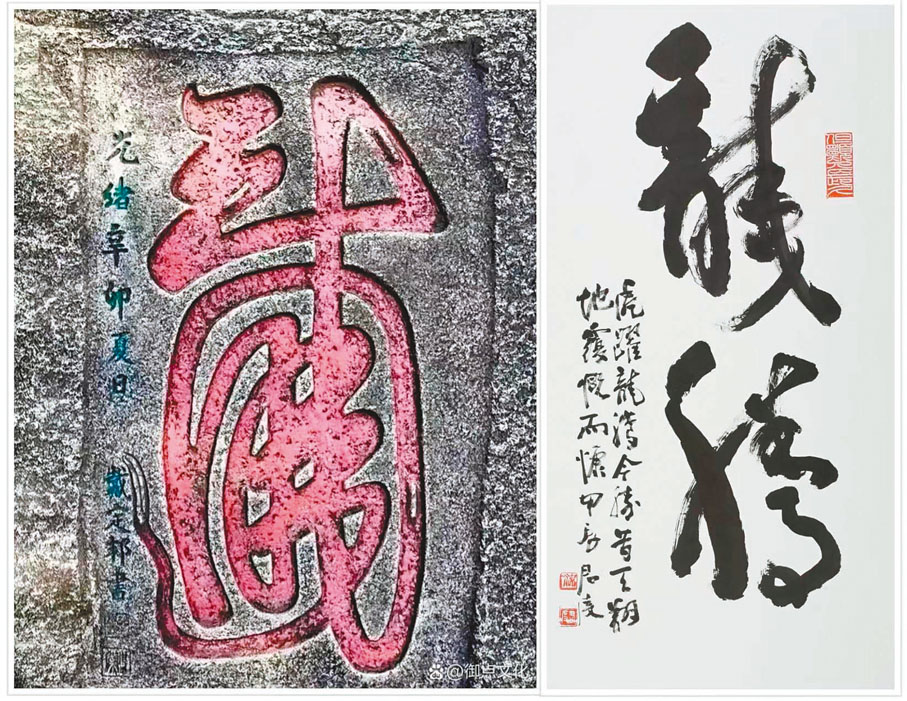 光緒辛卯夏日
戴定書
@御点文化
龍騰
虎躍龍騰今勝昔天翻
地覆慨而慷甲辰